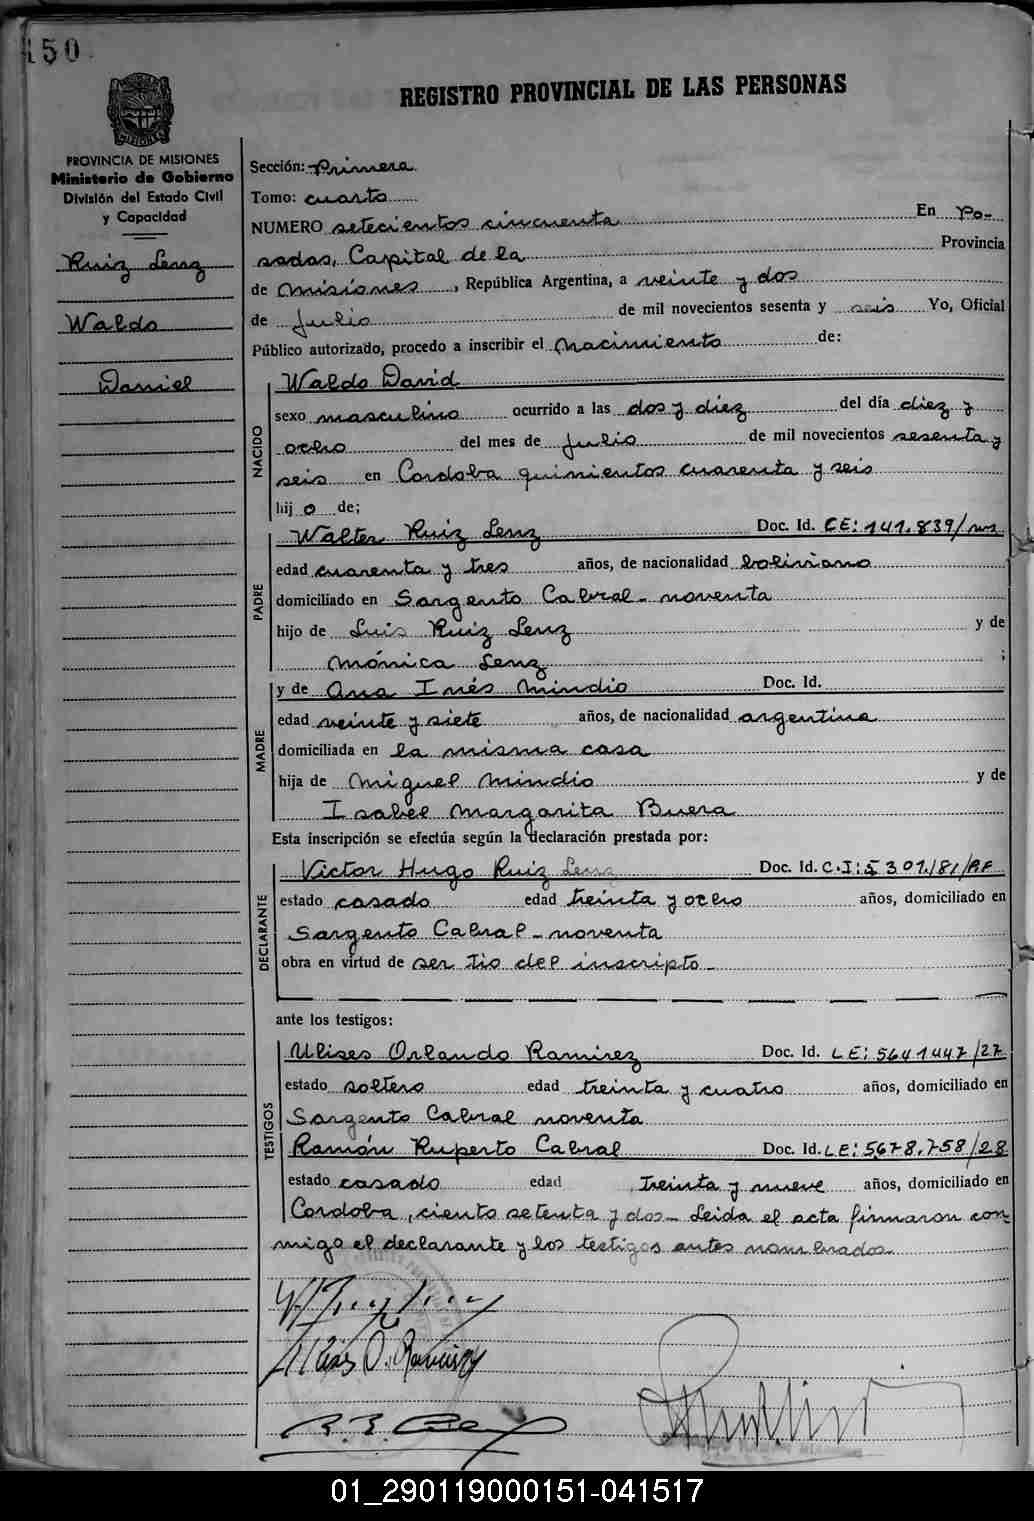 150
REGISTRO PROVINCIAL DE LAS PERSONAS
PROVINCIA DE MISIONES
Ministerio de Gobierno
División del Estado Civil
y Capacidad
Ruiz Lenz
Waldo
Daniel
Sección: Primera
Tomo: cuarto
NUMERO setecientos cincuenta En Po-
sadas, Capital de la Provincia
de Misiones, República Argentina, a veinte y dos
de Julio de mil novecientos sesenta y seis Yo, Oficial
Público autorizado, procedo a inscribir el Nacimiento de:
NACIDO
Waldo David
sexo masculino ocurrido a las dos y diez del día diez y
ocho del mes de Julio de mil novecientos sesenta y
seis en Cordoba quinientos cuarenta y seis
hij o de;
PADRE
Walter Ruiz Lenz Doc. Id. CE: 141.839/
edad cuarenta y tres años, de nacionalidad boliviano
domiciliado en Sargento Cabral - noventa
hijo de Luis Ruiz Lenz y de
Mónica Lenz ;
MADRE
y de Ana Inés Mindio Doc. Id.
edad veinte y siete años, de nacionalidad argentina
domiciliada en la misma casa
hija de Miguel Mindio y de
Isabel Margarita Buera
Esta inscripción se efectúa según la declaración prestada por:
DECLARANTE
Victor Hugo Ruiz Lenz Doc. Id. C.I: 5301/81/RF
estado casado edad treinta y ocho años, domiciliado en
Sargento Cabral - noventa
obra en virtud de ser tio del inscripto -
ante los testigos:
TESTIGOS
Ulises Orlando Ramirez Doc. Id. LE: 5641447/27
estado soltero edad treinta y cuatro años, domiciliado en
Sargento Cabral noventa
Ramón Ruperto Cabral Doc. Id. LE: 5678.758/28
estado casado edad treinta y nueve años, domiciliado en
Cordoba, ciento setenta y dos - Leida el acta firmaron con-
migo el declarante y los testigos antes nombrados.
Ulises O. Ramirez
01_290119000151-041517